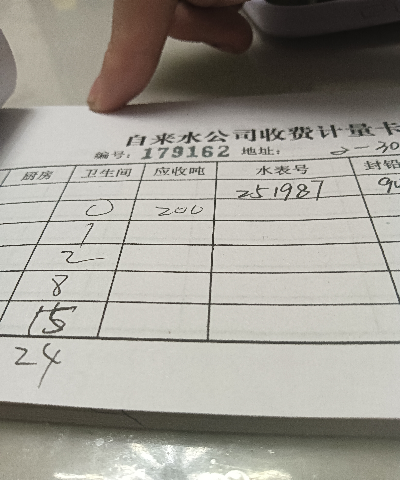 自来水公司收费计量卡
编号: 179162 地址: 2-30
厨房 卫生间 应收吨 水表号 封铅
0 200 251987
1
2
8
15
24